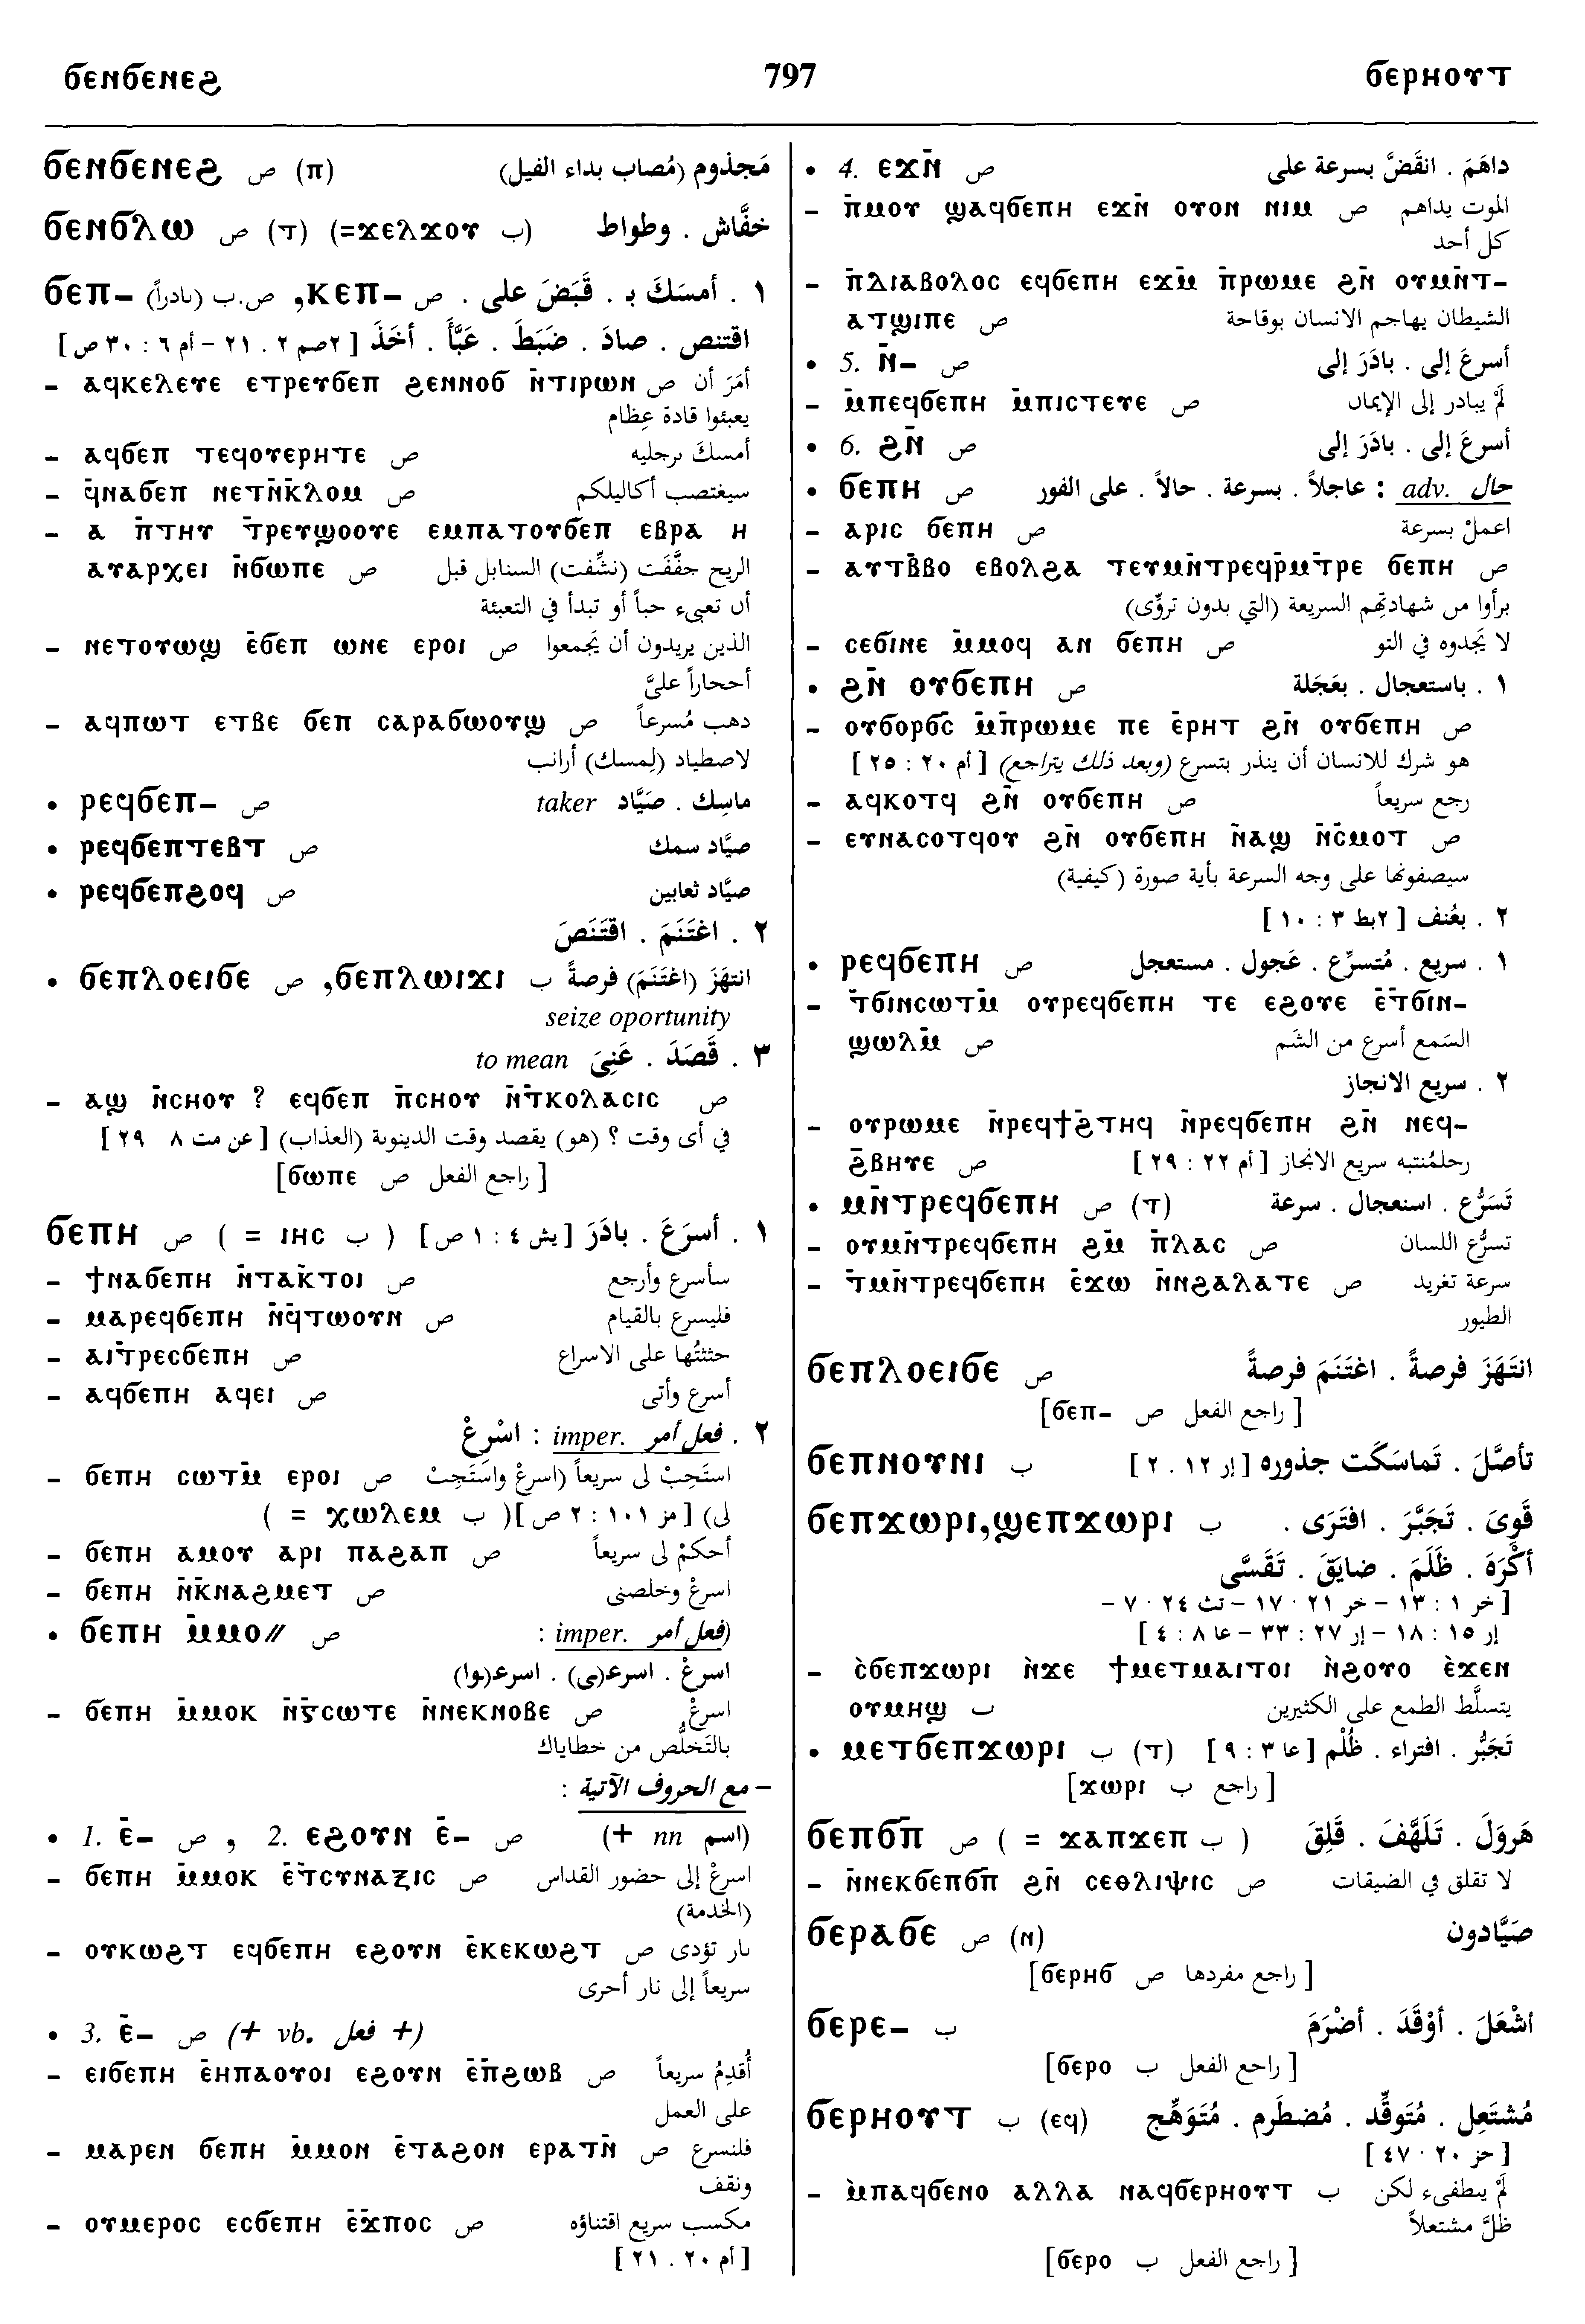 ϭⲉⲛϭⲉⲛⲉϩ 797 ϭⲉⲣⲏⲟⲩⲧ
ϭⲉⲛϭⲉⲛⲉϩ ص (ⲡ) مَجذوم (مُصاب بداء الفيل)
ϭⲉⲛϭⲗⲱ ص (ⲧ) (=ϫⲉⲗϫⲟⲩ ب) خفَّاش . وطواط
ϭⲉⲡ– ص.ب (نادراً) ,ⲕⲉⲡ– ص ١ . أمسَكَ بـ . قَبَضَ على .
اقتنص . صادَ . ضَبَطَ . عَبَّأَ . أخَذَ [٢صم ٢ . ٢١ – أم ٦ : ٣٠ ص]
– ⲁϥⲕⲉⲗⲉⲩⲉ ⲉⲧⲣⲉⲩϭⲉⲡ ϩⲉⲛⲛⲟϭ ⲛ̄ⲧⲓⲣⲱⲛ ص أمَرَ أن
يعبئوا قادة عِظام
– ⲁϥϭⲉⲡ ⲧⲉϥⲟⲩⲉⲣⲏⲧⲉ ص أمسكَ برجليه
– ϥ̄ⲛⲁϭⲉⲡ ⲛⲉⲧⲛ̄ⲕ̄ⲗⲟⲙ ص سيغتصب أكاليلكم
– ⲁ ⲡ̄ⲧⲏⲩ ⲧ̄ⲣⲉⲩϣⲟⲟⲩⲉ ⲉⲙⲡⲁⲧⲟⲩϭⲉⲡ ⲉⲃⲣⲁ ⲏ
ⲁⲩⲁⲣⲭⲉⲓ ⲛ̄ϭⲱⲡⲉ ص الريح جفَّفَت (نشِّفت) السنابل قبل
أن تعبىء حباً أو تبدأ في التعبئة
– ⲛⲉⲧⲟⲩⲱϣ ⲉ̄ϭⲉⲡ ⲱⲛⲉ ⲉⲣⲟⲓ ص الذين يريدون أن يَجمعوا
أحجاراً علىَّ
– ⲁϥⲡⲱⲧ ⲉⲧⲃⲉ ϭⲉⲡ ⲥⲁⲣⲁϭⲱⲟⲩϣ ص ذهب مُسرعاً
لاصطياد (لِمسك) أرانب
• ⲣⲉϥϭⲉⲡ– ص ماسِك . صَيَّاد taker
• ⲣⲉϥϭⲉⲡⲧⲉⲃⲧ ص صيَّاد سمك
• ⲣⲉϥϭⲉⲡϩⲟϥ ص صيَّاد ثعابين
٢ . اغتَنَمَ . اقتَنَصَ
• ϭⲉⲡⲗⲟⲉⲓϭⲉ ص ,ϭⲉⲡⲗⲱⲓϫⲓ ب انتهَزَ (اغتَنَمَ) فرصةً
seize oportunity
٣ . قَصَدَ . عَنِىَ to mean
– ⲁϣ ⲛ̄ⲥⲏⲟⲩ ? ⲉϥϭⲉⲡ ⲡ̄ⲥⲏⲟⲩ ⲛ̄ⲧ̄ⲕⲟⲗⲁⲥⲓⲥ ص
في أى وقت ؟ (هو) يقصد وقت الدينونة (العذاب) [عن مت ٨ ٢٩]
[راجع الفعل ص ϭⲱⲡⲉ]
ϭⲉⲡⲏ ص ( = ⲓⲏⲥ ب ) ١ . أسرَعَ . بادَرَ [يش ٤ : ١ ص]
– ϯⲛⲁϭⲉⲡⲏ ⲛ̄ⲧⲁⲕ̄ⲧⲟⲓ ص سأسرع وأرجع
– ⲙⲁⲣⲉϥϭⲉⲡⲏ ⲛ̄ϥ̄ⲧⲱⲟⲩⲛ ص فليسرع بالقيام
– ⲁⲓⲧ̄ⲣⲉⲥϭⲉⲡⲏ ص حثثتُها على الاسراع
– ⲁϥϭⲉⲡⲏ ⲁϥⲉⲓ ص أسرع وأتى
٢ . فعل أمر imper. : اسْرِعْ
– ϭⲉⲡⲏ ⲥⲱⲧⲙ̄ ⲉⲣⲟⲓ ص استَجِبْ لى سريعاً (اسرعْ واستَجِبْ
لى) [مز ١٠١ : ٢ ص]( ب ⲭⲱⲗⲉⲙ = )
– ϭⲉⲡⲏ ⲁⲙⲟⲩ ⲁⲣⲓ ⲡⲁϩⲁⲡ ص أحكمْ لى سريعاً
– ϭⲉⲡⲏ ⲛ̄ⲕ̄ⲛⲁϩⲙⲉⲧ ص اسرعْ وخلصنى
• ϭⲉⲡⲏ ⲙ̄ⲙⲟ// ص (فعل أمر imper. :
اسرعْ . اسرع(ى) . اسرع(وا)
– ϭⲉⲡⲏ ⲙ̄ⲙⲟⲕ ⲛ̄ⲅ̄ⲥⲱⲧⲉ ⲛ̄ⲛⲉⲕⲛⲟⲃⲉ ص اسرعْ
بالتَخلُّص من خطاياك
– مع الحروف الآتية :
• 1. ⲉ̄– ص , 2. ⲉϩⲟⲩⲛ ⲉ̄– ص (+ nn اسم)
– ϭⲉⲡⲏ ⲙ̄ⲙⲟⲕ ⲉ̄ⲧ̄ⲥⲩⲛⲁⲝⲓⲥ ص اسرعْ إلى حضور القداس
(الخدمة)
– ⲟⲩⲕⲱϩⲧ ⲉϥϭⲉⲡⲏ ⲉϩⲟⲩⲛ ⲉ̄ⲕⲉⲕⲱϩⲧ ص نار تؤدى
سريعاً إلى نار أخرى
• 3. ⲉ̄– ص (+ vb. فعل +)
– ⲉⲓϭⲉⲡⲏ ⲉ̄ⲏⲡⲁⲟⲩⲟⲓ ⲉϩⲟⲩⲛ ⲉ̄ⲡ̄ϩⲱⲃ ص أُقدِمُ سريعاً
على العمل
– ⲙⲁⲣⲉⲛ ϭⲉⲡⲏ ⲙ̄ⲙⲟⲛ ⲉ̄ⲧⲁϩⲟⲛ ⲉⲣⲁⲧⲛ̄ ص فلنسرع
ونقف
– ⲟⲩⲙⲉⲣⲟⲥ ⲉⲥϭⲉⲡⲏ ⲉ̄ϫ̄ⲡⲟⲥ ص مكسب سريع اقتناؤه
[أم ٢٠ . ٢١]
• 4. ⲉϫⲛ̄ ص داهَمَ . انقَضَّ بسرعة على
– ⲡ̄ⲙⲟⲩ ϣⲁϥϭⲉⲡⲏ ⲉϫⲛ̄ ⲟⲩⲟⲛ ⲛⲓⲙ ص الموت يداهم
كل أحد
– ⲡ̄ⲇⲓⲁⲃⲟⲗⲟⲥ ⲉϥϭⲉⲡⲏ ⲉϫⲙ̄ ⲡ̄ⲣⲱⲙⲉ ϩⲛ̄ ⲟⲩⲙⲛ̄ⲧ–
ⲁⲧϣⲓⲡⲉ ص الشيطان يهاجم الانسان بوقاحة
• 5. ⲛ̄– ص أسرعَ إلى . بادَرَ إلى
– ⲙ̄ⲡⲉϥϭⲉⲡⲏ ⲙ̄ⲡⲓⲥⲧⲉⲩⲉ ص لَمْ يبادر إلى الإيمان
• 6. ϩⲛ̄ ص أسرعَ إلى . بادَرَ إلى
• ϭⲉⲡⲏ ص حال adv. : عاجلاً . بسرعة . حالاً . على الفور
– ⲁⲣⲓⲥ ϭⲉⲡⲏ ص اعملْ بسرعة
– ⲁⲩⲧⲃ̄ⲃⲟ ⲉⲃⲟⲗϩⲁ ⲧⲉⲩⲙⲛ̄ⲧⲣⲉϥⲣ̄ⲙ̄ⲧⲣⲉ ϭⲉⲡⲏ ص
برأوا من شهادتِهم السريعة (التي بدون تروِّى)
– ⲥⲉϭⲓⲛⲉ ⲙ̄ⲙⲟϥ ⲁⲛ ϭⲉⲡⲏ ص لا يَجدوه في التو
• ϩⲛ̄ ⲟⲩϭⲉⲡⲏ ص ١ . باستعجال . بعَجَلة
– ⲟⲩϭⲟⲣϭⲥ̄ ⲙ̄ⲡ̄ⲣⲱⲙⲉ ⲡⲉ ⲉ̄ⲣⲏⲧ ϩⲛ̄ ⲟⲩϭⲉⲡⲏ ص
هو شرك للانسان أن ينذر بتسرع (وبعد ذلك يتراجع) [أم ٢٠ : ٢٥]
– ⲁϥⲕⲟⲧϥ ϩⲛ̄ ⲟⲩϭⲉⲡⲏ ص رجع سريعاً
– ⲉⲩⲛⲁⲥⲟⲧϥⲟⲩ ϩⲛ̄ ⲟⲩϭⲉⲡⲏ ⲛ̄ⲁϣ ⲛ̄ⲥ̄ⲙⲟⲧ ص
سيصفونها على وجه السرعة بأية صورة (كيفية)
٢ . بعُنف [٢بط ٣ : ١٠]
• ⲣⲉϥϭⲉⲡⲏ ص ١ . سريع . مُتسرِّع . عَجول . مستعجل
– ⲧ̄ϭⲓⲛⲥⲱⲧⲙ̄ ⲟⲩⲣⲉϥϭⲉⲡⲏ ⲧⲉ ⲉϩⲟⲩⲉ ⲉ̄ⲧ̄ϭⲓⲛ–
ϣⲱⲗⲙ̄ ص السَمع أسرع من الشَم
٢ . سريع الانجاز
– ⲟⲩⲣⲱⲙⲉ ⲛ̄ⲣⲉϥϯϩ̄ⲧⲏϥ ⲛ̄ⲣⲉϥϭⲉⲡⲏ ϩⲛ̄ ⲛⲉϥ–
ϩ̄ⲃⲏⲩⲉ ص رجلمُنتبه سريع الانجاز [أم ٢٢ : ٢٩]
• ⲙⲛ̄ⲧⲣⲉϥϭⲉⲡⲏ ص (ⲧ) تَسَرُّع . استعجال . سرعة
– ⲟⲩⲙⲛ̄ⲧⲣⲉϥϭⲉⲡⲏ ϩⲙ̄ ⲡ̄ⲗⲁⲥ ص تسرُّع اللسان
– ⲧ̄ⲙⲛ̄ⲧⲣⲉϥϭⲉⲡⲏ ⲉ̄ϫⲱ ⲛ̄ⲛϩⲁⲗⲁⲧⲉ ص سرعة تغريد
الطيور
ϭⲉⲡⲗⲟⲉⲓϭⲉ ص انتَهَزَ فرصةً . اغتَنَمَ فرصةً
[راجع الفعل ص ϭⲉⲡ–]
ϭⲉⲡⲛⲟⲩⲛⲓ ب تأصَّلَ . تَماسَكَت جذوره [إر ١٢ . ٢]
ϭⲉⲡϫⲱⲣⲓ,ϣⲉⲡϫⲱⲣⲓ ب قَوِىَ . تَجَبَّرَ . افتَرَى .
أكْرَهَ . ظَلَمَ . ضايَقَ . تَقَسَّى
[خر ١ : ١٣ – خر ٢١ · ١٧ – تث ٢٤ · ٧ –
إر ١٥ : ١٨ – إر ٢٧ : ٣٣ – عا ٨ : ٤]
– ⲥ̀ϭⲉⲡϫⲱⲣⲓ ⲛ̀ϫⲉ ϯⲙⲉⲧⲙⲁⲓⲧⲟⲓ ⲛ̀ϩⲟⲩⲟ ⲉ̀ϫⲉⲛ
ⲟⲩⲙⲏϣ ب يتسلَّط الطمع على الكثيرين
• ⲙⲉⲧϭⲉⲡϫⲱⲣⲓ ب (ⲧ) تَجَبُّر . افتراء . ظُلْم [عا ٣ : ٩]
[راجع ب ϫⲱⲣⲓ]
ϭⲉⲡϭⲡ̄ ص ( = ϫⲁⲡϫⲉⲡ ب ) هَروَلَ . تَلَهَّفَ . قَلِقَ
– ⲛ̄ⲛⲉⲕϭⲉⲡϭⲡ̄ ϩⲛ̄ ⲥⲉⲑⲗⲓⲯⲓⲥ ص لا تقلق في الضيقات
ϭⲉⲣⲁϭⲉ ص (ⲛ) صَيَّادون
[راجع مفردها ص ϭⲉⲣⲏϭ]
ϭⲉⲣⲉ– ب أشْعَلَ . أوْقَدَ . أضْرَمَ
[راجع الفعل ب ϭⲉⲣⲟ]
ϭⲉⲣⲏⲟⲩⲧ ب (ⲉϥ) مُشتَعِل . مُتَوقِّد . مُضطَرِم . مُتَوَهِّج
[حز ٢٠ · ٤٧]
– ⲙ̀ⲡⲁϥϭⲉⲛⲟ ⲁⲗⲗⲁ ⲛⲁϥϭⲉⲣⲏⲟⲩⲧ ب لَمْ ينطفىء لكن
ظلَّ مشتعلاً
[راجع الفعل ب ϭⲉⲣⲟ]